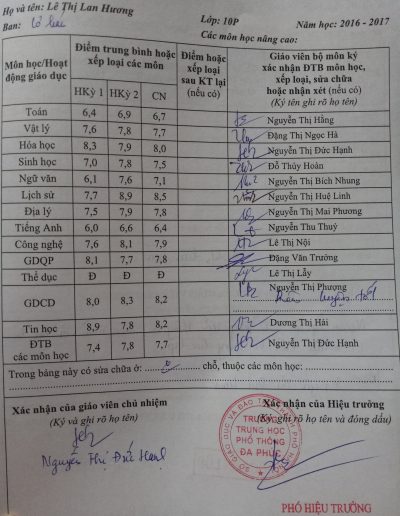 Họ và tên: Lê Thị Lan Hương
Ban: Cơ bản Lớp: 10P Năm học: 2016 - 2017
Các môn học nâng cao:
Môn học/Hoạt động giáo dục
Điểm trung bình hoặc xếp loại các môn
HKỳ 1 HKỳ 2 CN
Điểm hoặc xếp loại sau KT lại (nếu có)
Giáo viên bộ môn ký xác nhận ĐTB môn học, xếp loại, sửa chữa hoặc nhận xét (nếu có)
(Ký tên ghi rõ họ tên)
Toán 6,4 6,9 6,7 Nguyễn Thị Hằng
Vật lý 7,6 7,8 7,7 Đặng Thị Ngọc Hà
Hóa học 8,3 7,9 8,0 Nguyễn Thị Đức Hạnh
Sinh học 7,0 7,8 7,5 Đỗ Thủy Hoàn
Ngữ văn 6,1 7,6 7,1 Nguyễn Thị Bích Nhung
Lịch sử 7,7 8,9 8,5 Nguyễn Thị Huệ Linh
Địa lý 7,5 7,9 7,8 Nguyễn Thị Mai Phương
Tiếng Anh 6,0 6,6 6,4 Nguyễn Thu Thuỷ
Công nghệ 7,6 8,1 7,9 Lê Thị Nội
GDQP 8,1 7,7 7,8 Đặng Văn Trưởng
Thể dục Đ Đ Đ Lê Thị Lẫy
GDCD 8,0 8,3 8,2 Nguyễn Thị Phượng
Tin học 8,9 7,8 8,2 Dương Thị Hải
ĐTB các môn học 7,4 7,8 7,7 Nguyễn Thị Đức Hạnh
Trong bảng này có sửa chữa ở: 0 chỗ, thuộc các môn học:
Xác nhận của giáo viên chủ nhiệm
(Ký và ghi rõ họ tên)
Nguyễn Thị Đức Hạnh
Xác nhận của Hiệu trưởng
(Ký, ghi rõ họ tên và đóng dấu)
TRƯỜNG
TRUNG HỌC
PHỔ THÔNG
ĐA PHÚC
PHÓ HIỆU TRƯỞNG